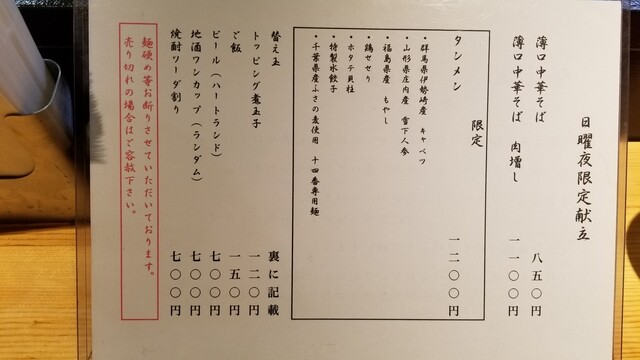 日曜夜限定献立
薄口中華そば 八五〇円
薄口中華そば 肉増し 一一〇〇円
限定
タンメン 一二〇〇円
・群馬県伊勢崎産 キャベツ
・山形県庄内産 雪下人参
・福島県産 もやし
・鶏セセリ
・ホタテ貝柱
・特製水餃子
・千葉県産ふさの麦使用 十四番専用麺
替え玉 裏に記載
トッピング煮玉子 一二〇円
ご飯 一五〇円
ビール(ハートランド) 七〇〇円
地酒ワンカップ(ランダム) 七〇〇円
焼酎ソーダ割り 七〇〇円
麺硬め等お断りさせていただいております。
売り切れの場合はご容赦下さい。